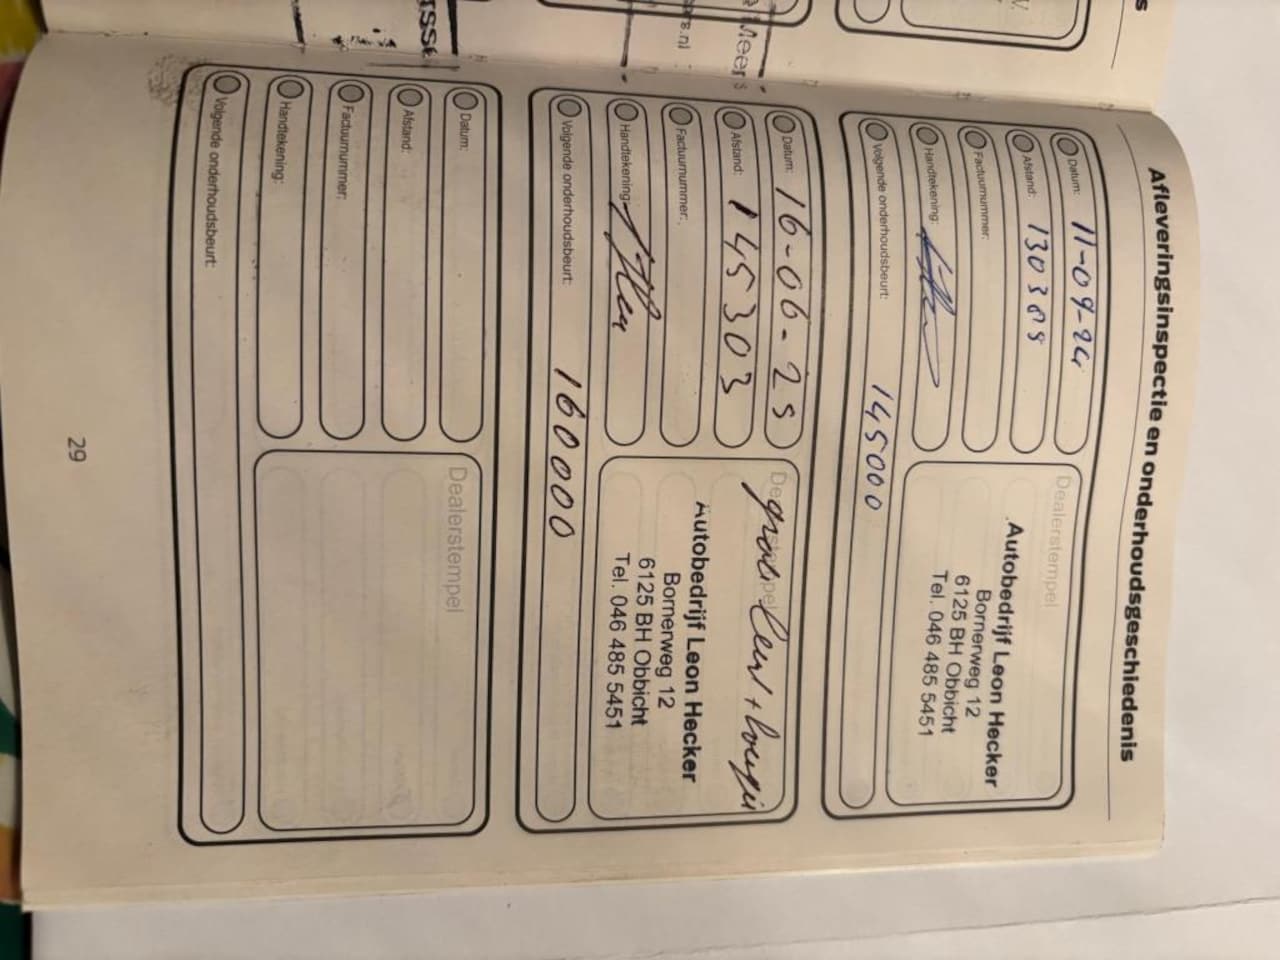 Afleveringsinspectie en onderhoudsgeschiedenis
Datum: 11-09-24
Afstand: 130389
Factuurnummer:
Handtekening:
Volgende onderhoudsbeurt: 145000
Dealerstempel
Autobedrijf Leon Hecker
Bornerweg 12
6125 BH Obbicht
Tel. 046 485 5451
Datum: 16-06-25
Afstand: 145303
Factuurnummer:
Handtekening:
Volgende onderhoudsbeurt: 160000
Dealerstempel
grote beurt + bougie
Autobedrijf Leon Hecker
Bornerweg 12
6125 BH Obbicht
Tel. 046 485 5451
Datum:
Afstand:
Factuurnummer:
Handtekening:
Volgende onderhoudsbeurt:
Dealerstempel
29